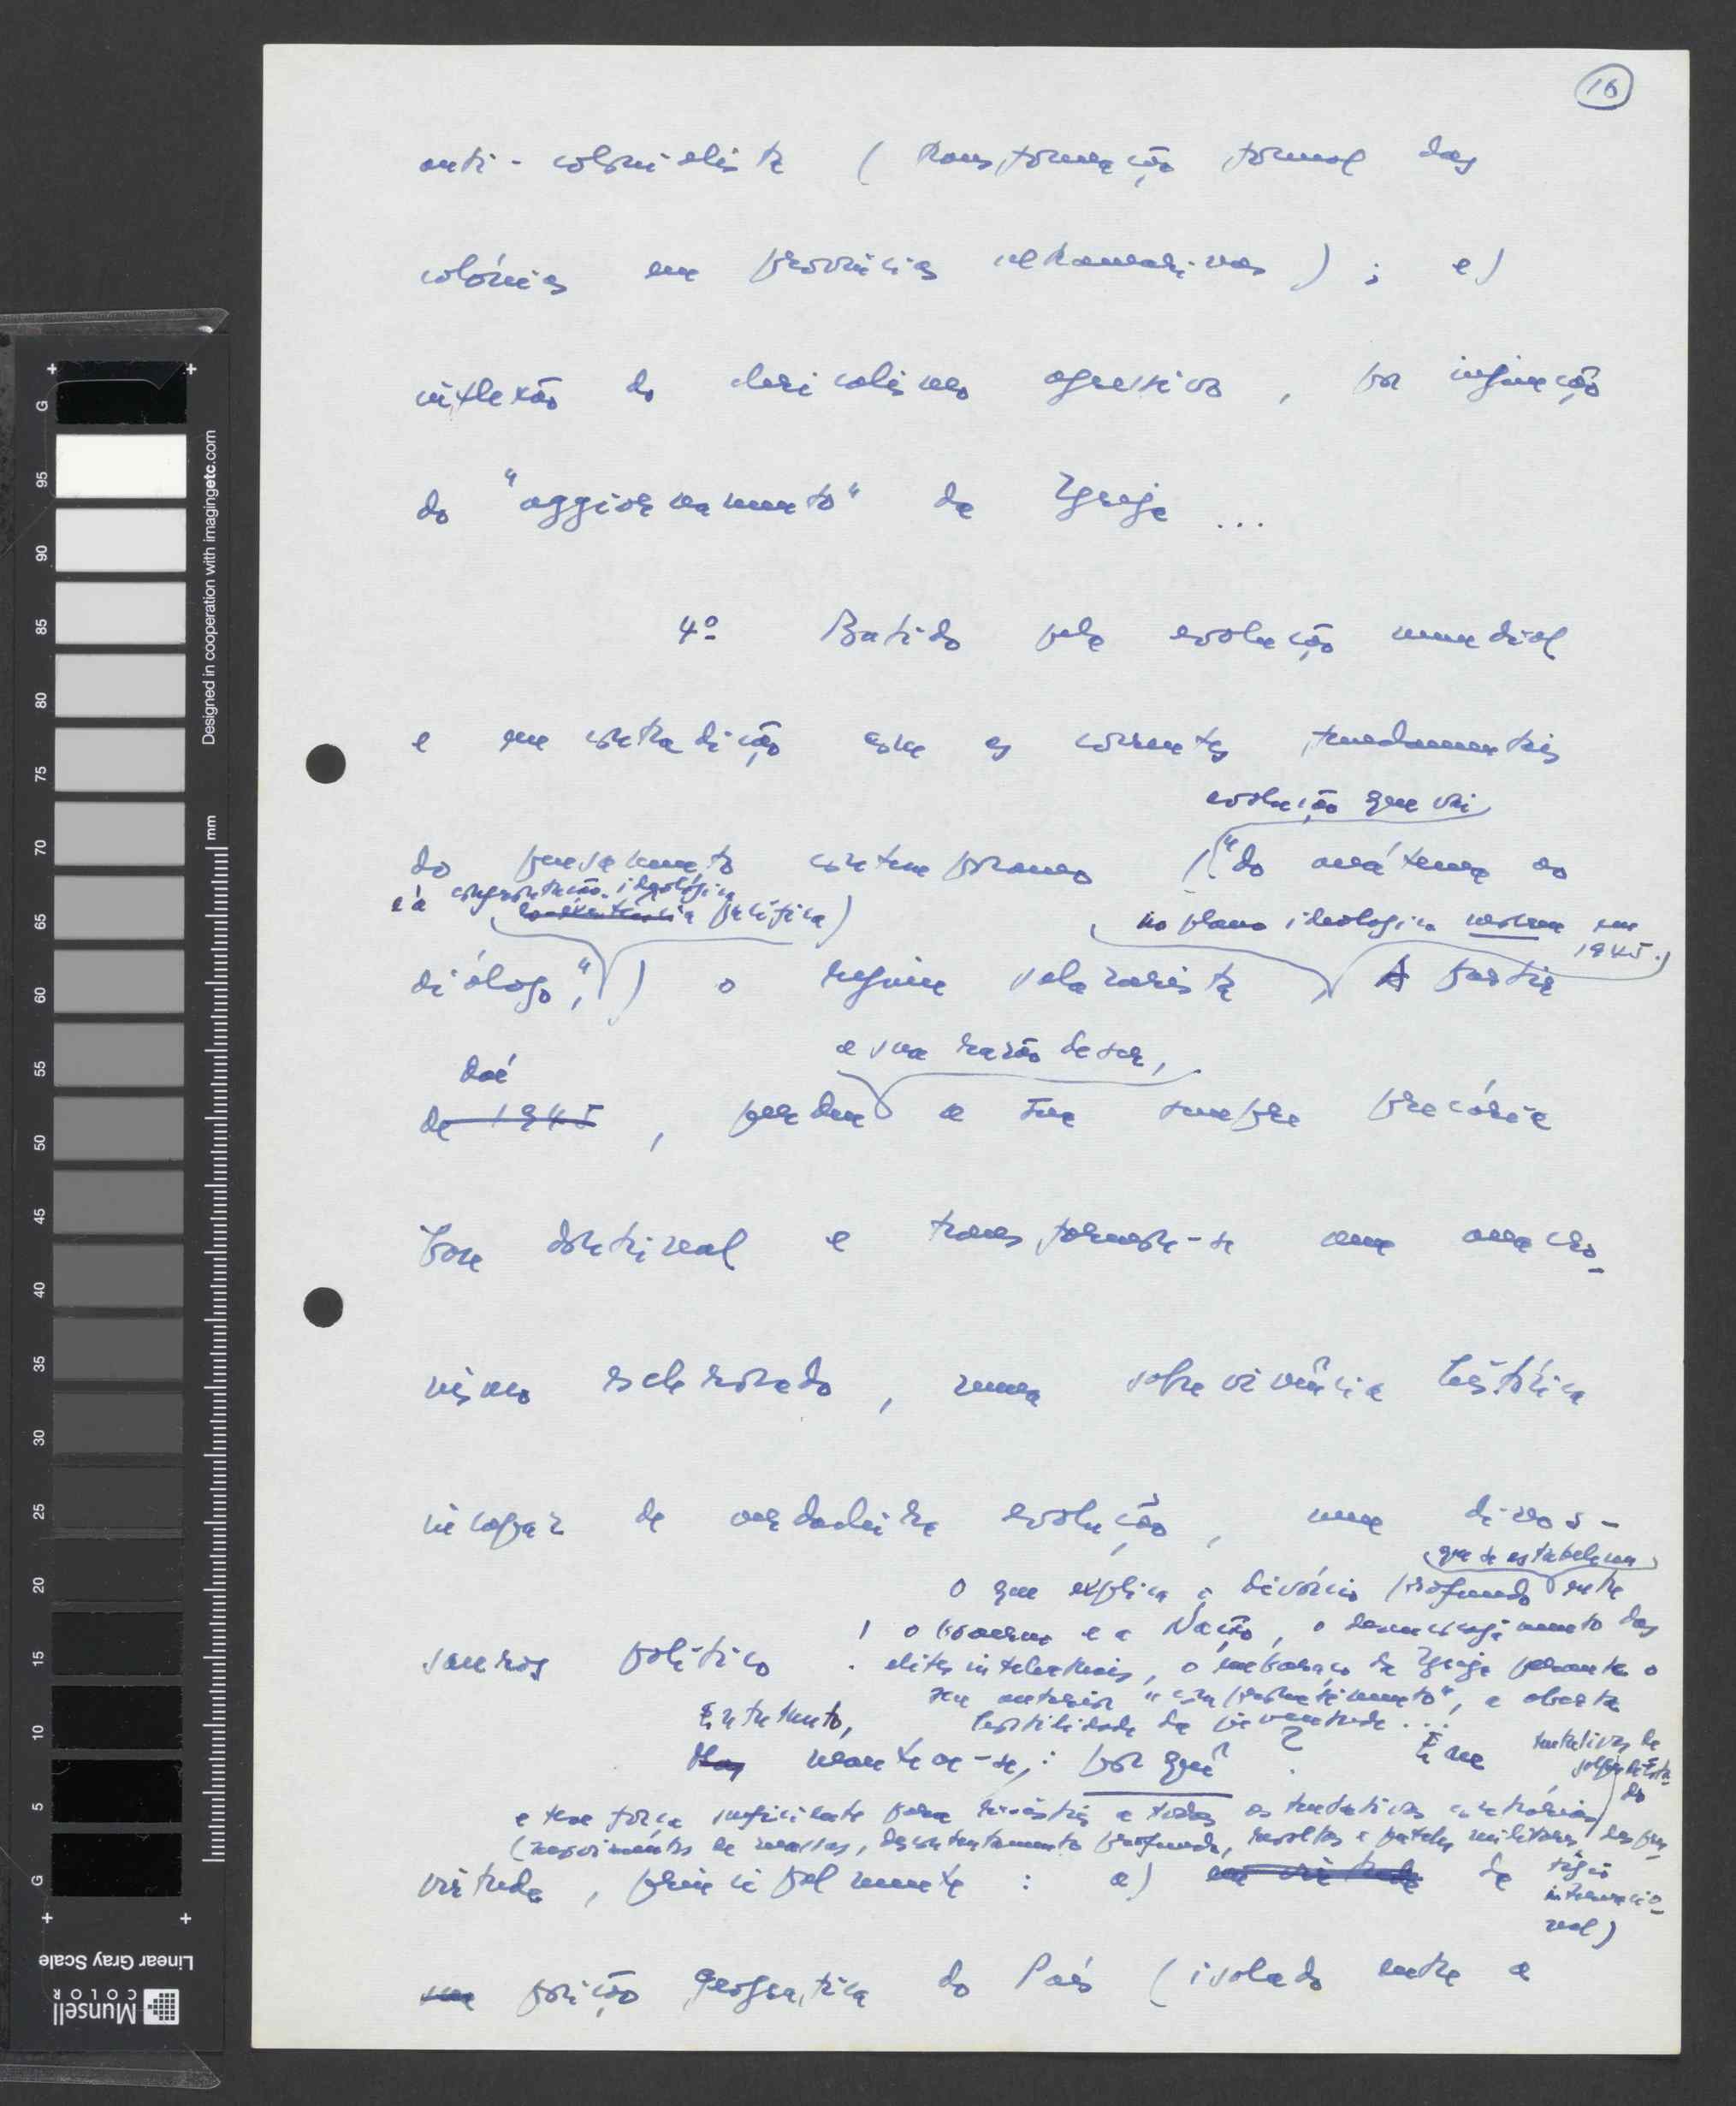 16
anti-colonialista (transformação formal das
colónias em províncias ultramarinas); e)
inflexão do clericalismo agressivo, por injunção
do "aggiornamento" da Igreja ...
4º Batido pela evolução mundial
e em contradição com as correntes fundamentais
evolução que vai
do pensamento contemporaneo ("do anátema ao
e à ideológica
coexistência pacífica)
no plano ideologico morreu em
1945.)
diálogo",) o regime salazarista A partir
daí a sua razão de ser,
de 1945, perdeu a sua sempre precária
base doutrinal e transformou-se num anacro-
nismo esclerosado, numa sobrevivência histórica
incapaz de verdadeira evolução, num dinos-
que se estabeleceu
o que explica o divórcio profundo entre
o Governo e a Nação, o das
sauros político.
elites intelectuais, o embaraço da Igreja perante o
seu anterior "comprometimento", a aberta
hostilidade da juventude...
Entretanto,
Mas manteve-se; : por quê? Em
tentativas de
golpe de Esta-
do
e teve força suficiente para resistir a todas as tentativas contrárias
(movimentos de massas, descontentamento profundo, revoltas e militares, despres-
tígio
internacio-
nal)
virtude, principalmente : a) em virtude da
sua posição geográfica do País (isolado entre a
Designed in cooperation with imagingetc.com
mm
G 95 90 85 80 75 70 65 60 55 50 45 40 35 30 25 20 15 10 5 G
Linear Gray Scale
Munsell
COLOR